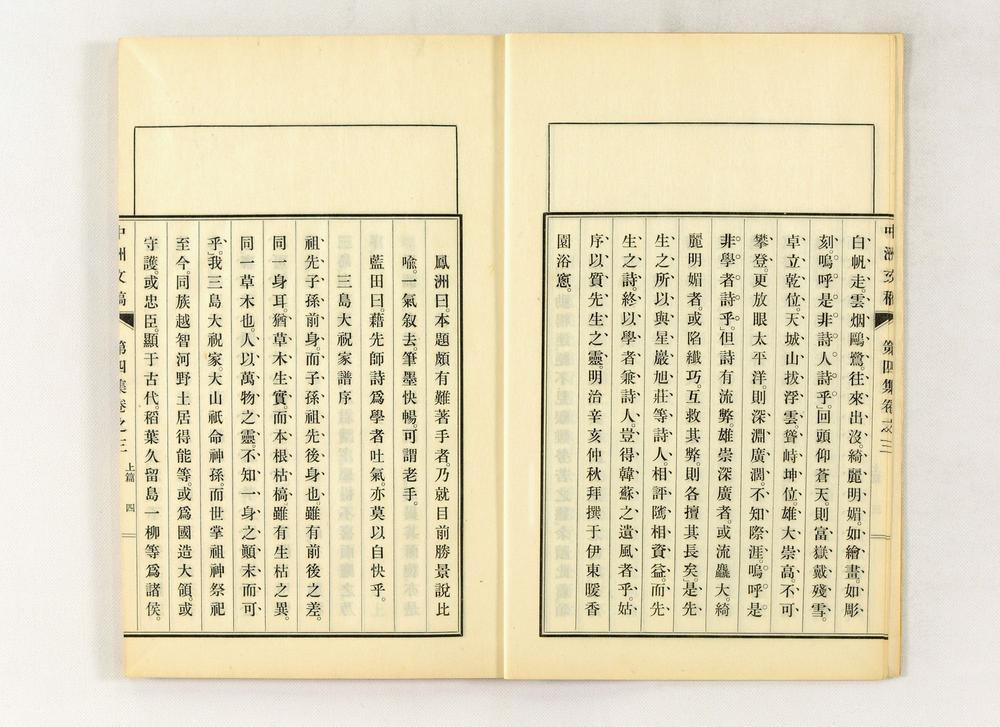 中洲文稿 第四集卷之三
白帆走。雲烟鷗鷺。往來出沒。綺麗明媚。如繪畫。如彫
刻。嗚呼是非詩人詩乎。」回頭仰蒼天。則富嶽戴殘雪。
卓立乾位。天城山拔浮雲。聳峙坤位。雄大崇高。不可
攀登。更放眼太平洋。則深淵廣濶。不知際涯。嗚呼是
非學者詩乎。」但詩有流弊。雄崇深廣者。或流麤大。綺
麗明媚者。或陷纎巧。互救其弊。則各擅其長矣。」是先
生之所以與星巖旭莊等詩人。相評隲相資益。而先
生之詩。終以學者兼詩人。豈得韓蘇之遺風者乎。姑
序以質先生之靈。明治辛亥仲秋拜撰于伊東暖香
園浴窻。
鳳洲曰。本題頗有難著手者。乃就目前勝景說比
喩。一氣叙去。筆墨快暢。可謂老手。
藍田曰。藉先師詩爲學者吐氣。亦莫以自快乎。
三島大祝家譜序
祖先子孫前身。而子孫祖先後身也。雖有前後之差。
同一身耳。猶草木生實。而本根枯槁雖有生枯之異。
同一草木也。人以萬物之靈。不知一身之顚末而可
乎。」我三島大祝家。大山祇命神孫。而世掌祖神祭祀
至今。同族越智河野土居得能等。或爲國造大領。或
守護。或忠臣。顯于古代。稻葉久留島一柳等爲諸侯。
中洲文稿 第四集卷之三 上篇 四